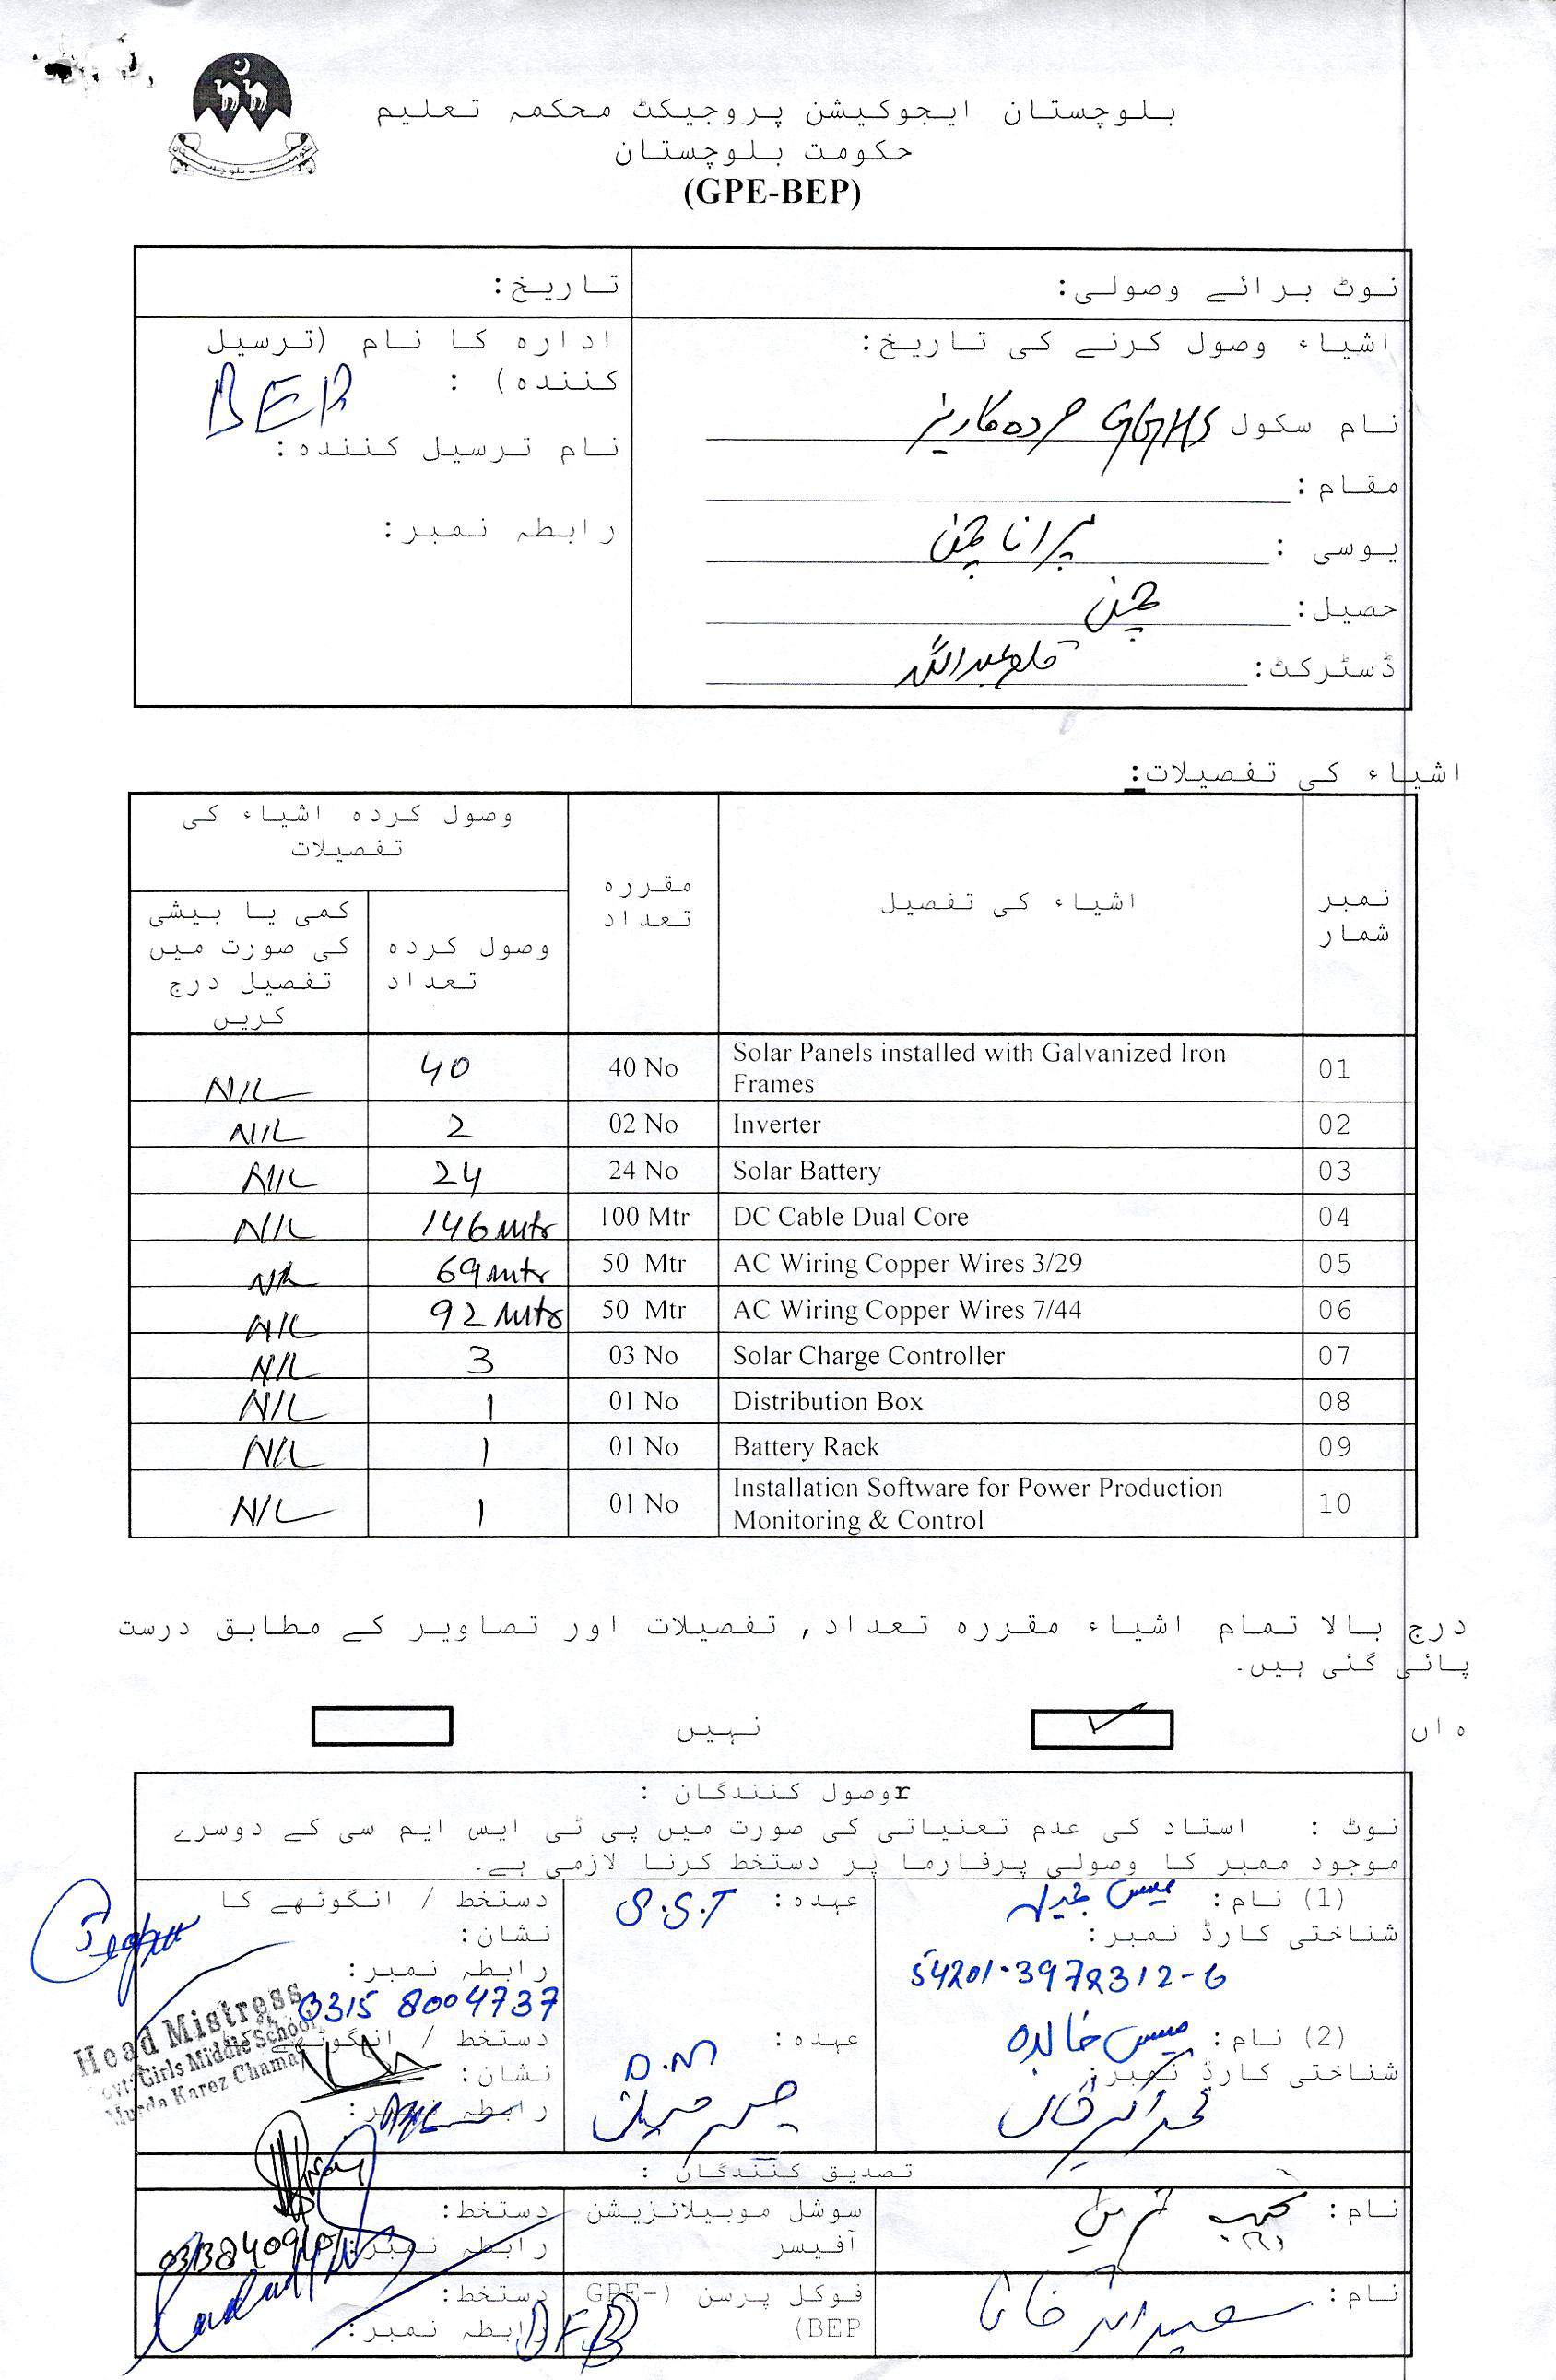 بلوچستان ایجوکیشن پروجیکٹ محکمہ تعلیم
حکومت بلوچستان
(GPE-BEP)
نوٹ برائے وصولی:
تاریخ:
اشیاء وصول کرنے کی تاریخ:
ادارہ کا نام (ترسیل کنندہ) :
BEP
نام سکول GGHS مردہ کاریز
نام ترسیل کنندہ:
مقام:
رابطہ نمبر:
یوسی : پرانا چمن
حصیل: چمن
ڈسٹرکٹ: قلعہ عبداللہ
اشیاء کی تفصیلات:
نمبر شمار
اشیاء کی تفصیل
مقررہ تعداد
وصول کردہ اشیاء کی تفصیلات
وصول کردہ تعداد
کمی یا بیشی کی صورت میں تفصیل درج کریں
01 Solar Panels installed with Galvanized Iron Frames 40 No 40 NIL
02 Inverter 02 No 2 NIL
03 Solar Battery 24 No 24 NIL
04 DC Cable Dual Core 100 Mtr 146 mtr NIL
05 AC Wiring Copper Wires 3/29 50 Mtr 69 mtr NIL
06 AC Wiring Copper Wires 7/44 50 Mtr 92 mtr NIL
07 Solar Charge Controller 03 No 3 NIL
08 Distribution Box 01 No 1 NIL
09 Battery Rack 01 No 1 NIL
10 Installation Software for Power Production Monitoring & Control 01 No 1 NIL
درج بالا تمام اشیاء مقررہ تعداد, تفصیلات اور تصاویر کے مطابق درست
پائی گئی ہیں.
ہاں ✓
نہیں
rوصول کنندگان :
نوٹ : استاد کی عدم تعنیاتی کی صورت میں پی ٹی ایس ایم سی کے دوسرے
موجود ممبر کا وصولی پرفارما پر دستخط کرنا لازمی ہے.
(1) نام: مس جمیلہ
عہدہ: S.S.T
دستخط / انگوٹھے کا نشان:
شناختی کارڈ نمبر:
54201-3978312-6
رابطہ نمبر:
0315 8004737
Head Mistress
Govt: Girls Middle School
Murda Karez Chaman
(2) نام: مس خالدہ
عہدہ: D.M
دستخط / انگوٹھے
نشان:
شناختی کارڈ نمبر:
رابطہ نمبر:
تصدیق کنندگان :
نام:
سوشل موبیلائزیشن آفیسر
دستخط:
رابطہ نمبر:
نام:
فوکل پرسن (GPE-BEP)
دستخط:
رابطہ نمبر: